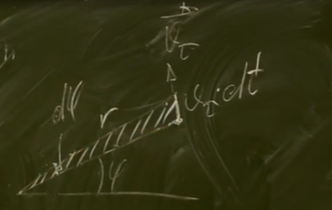 v⃗_τ
dφ
r
v_τ·dt
φ